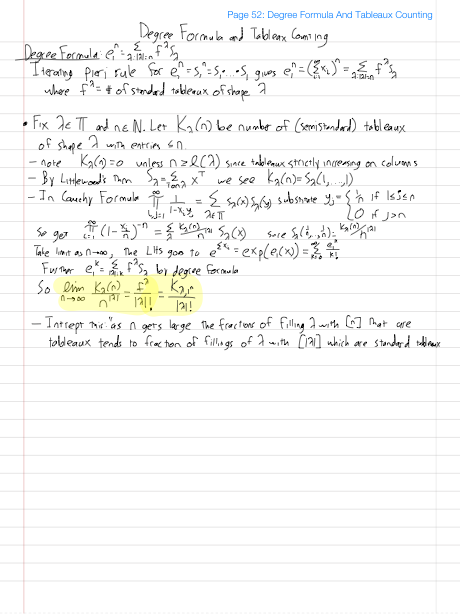 Page 52: Degree Formula And Tableaux Counting
Degree Formula and Tableax Counting
Degree Formula: e₁ⁿ = Σ_{λ:|λ|=n} f^λ S_λ
Iterating pieri rule for e₁ⁿ = S₁ⁿ = S₁···S₁ gives e₁ⁿ = (Σxᵢ)ⁿ = Σ_{λ:|λ|=n} f^λ S_λ
where f^λ = # of standard tableaux of shape λ
• Fix λ∈𝕋 and n∈ℕ. Let K_λ(n) be number of (semistandard) tableaux
of shape λ with entries ≤ n.
– note K_λ(n)=0 unless n ≥ ℓ(λ) since tableaux strictly increasing on columns
– By Littlewood's Thm S_λ = Σ x^T we see K_λ(n) = S_λ(1,...,1)
– In Cauchy Formula ∏_{i,j=1}^∞ 1/(1-xᵢyⱼ) = Σ_{λ∈𝕋} S_λ(x)S_λ(y) substitute yⱼ = { 1/n if 1≤j≤n
0 if j>n
So get ∏_{i=1}^∞ (1-xᵢ/n)^{-n} = Σ_λ K_λ(n)/n^{|λ|} S_λ(x) since S_λ(1/n,...,1/n) = K_λ(n)/n^{|λ|}
Take limit as n→∞, the LHS goes to e^{Σxᵢ} = exp(e₁(x)) = Σ_{k=0}^∞ e₁^k/k!
Further e₁^k = Σ_{λ:|λ|=k} f^λ S_λ by degree formula
So lim_{n→∞} K_λ(n)/n^{|λ|} = f^λ/|λ|! = K_{λ,1ⁿ}/|λ|!
– Intrept this "as n gets large the fractions of filling λ with [n] that are
tableaux tends to fraction of fillings of λ with [|λ|] which are standard tableaux